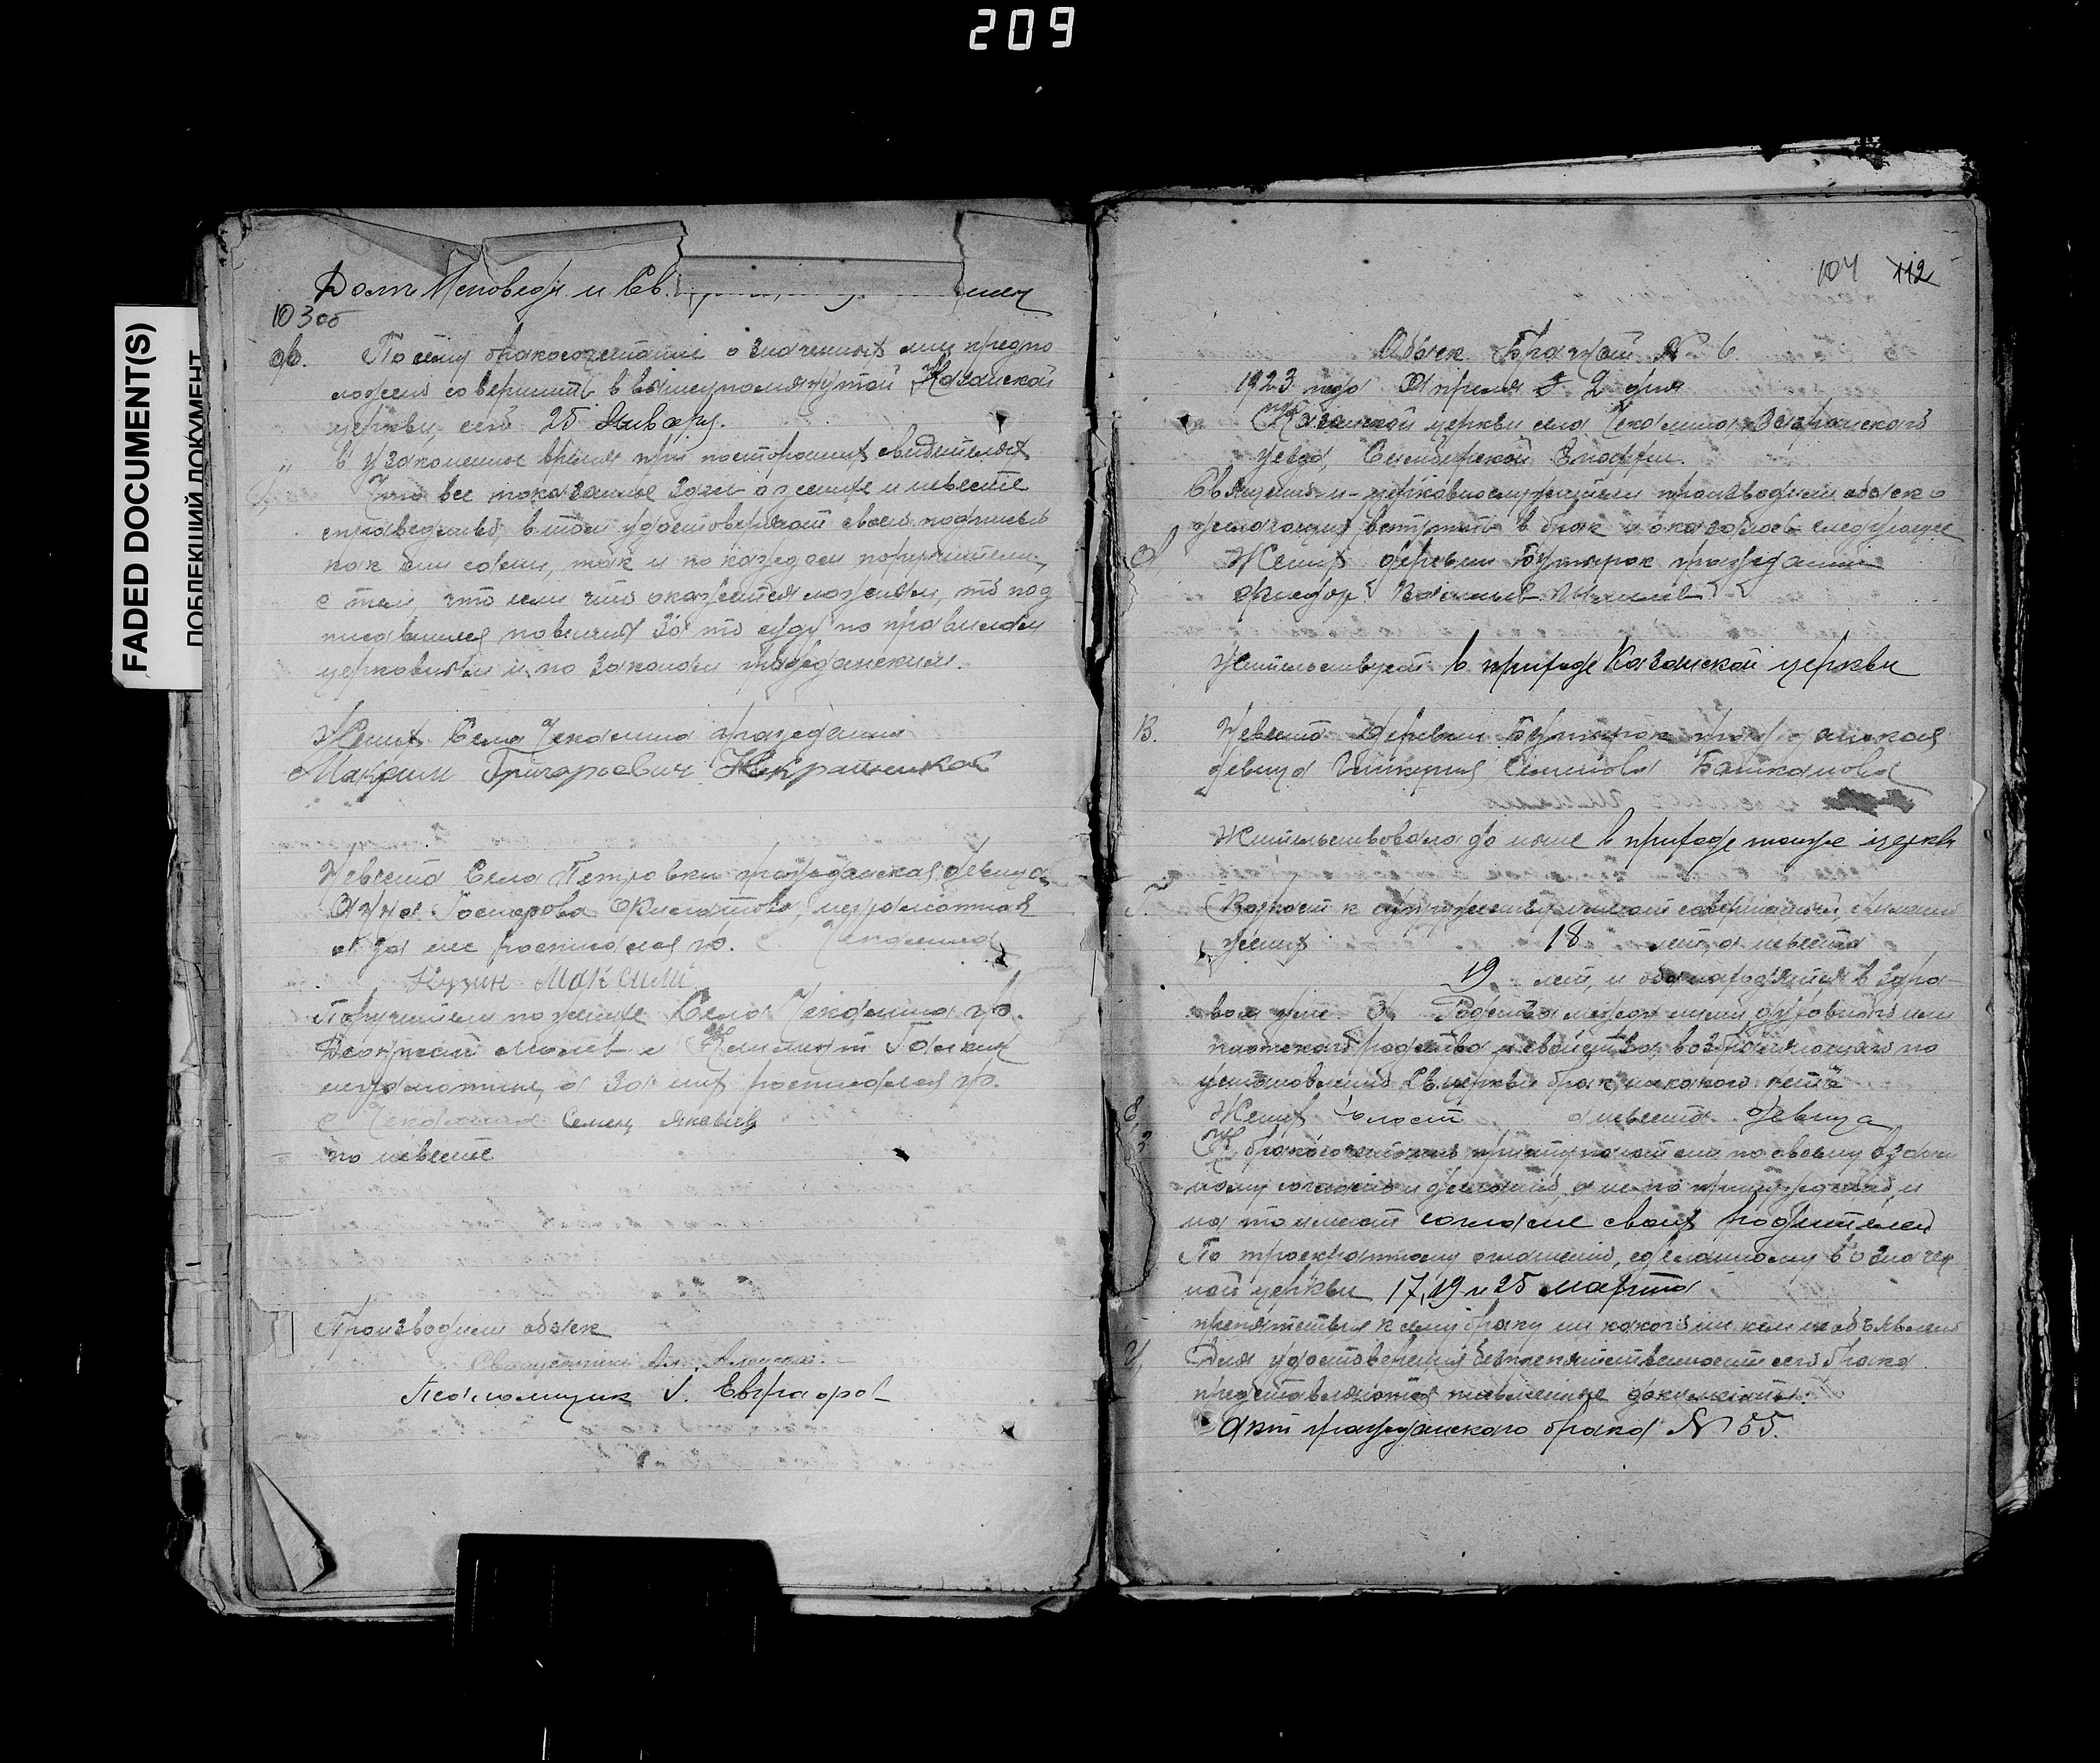 209
FADED DOCUMENT(S)
ПОБЛЕКШИЙ ДОКУМЕНТ
Долг Исповеди и Св.
103 об
По сему бракосочетание означенных лиц предпо
ложено совершить в вышеупомянутой Казанской
церкви, сего 25 Января.
в узаконенное время при посторонних свидетелях
Что все показанное здесь о женихе и невесте
справедливо, в том удостоверяют своею подписью
как они сами, так и по каждом поручители,
с тем, что если что окажется ложным, то под
писавшиеся повинны за то суду по правилам
церковным и по законам гражданским.
Жених Села Чекалина гражданин
Максим Григорьевич
Невеста Села Петровки гражданская девица
неграмотная
а за нее росписался гр. с Чекалина
Кузин Максим
Поручители по женихе Села Чекалина гр.
неграмотные, а за них росписался гр.
с Чекалина Семен Яковлев
по невесте
Производили обыск
Священник Ал.
Псаломщик
104 112
Обыск Брачный № 6
1923 года Апреля 2 дня
Казанской церкви села Чекалина Сызранского
уезда, Симбирской Епархии.
Священно-церковнослужители производили обыск о
желающих вступить в брак и оказалось следующее
Жених деревни Бутырок гражданин
Федор Васильев
Жительствует в приходе Казанской церкви
В. Невеста деревни Бутырок гражданская
девица Семенова Башканова
Жительствовала до ныне в приходе той же церкв
Г. Возраст к супружеству имеют совершенный, именно
жених 18 лет, а невеста
19 лет, и оба находятся в здра
вом уме Д. Родства между ними духовного или
плотского родства и свойства, возбраняющаго по
установлению Св. церкви брак, никакого нет
Е, Жених холост а невеста девица
К бракосочетанию приступают они по своему взаим
ному согласию и желанию, а не по принуждению, и
на то имеют согласие своих родителей
По троекратному оглашению, сделанному в означен
ной церкви 17, 19 и 25 марта
препятствия к сему браку никакого никем не объявлено
Для удостоверения безпрепятственности сего брака
представляются письменные документы.
Акт гражданского брака № 55.